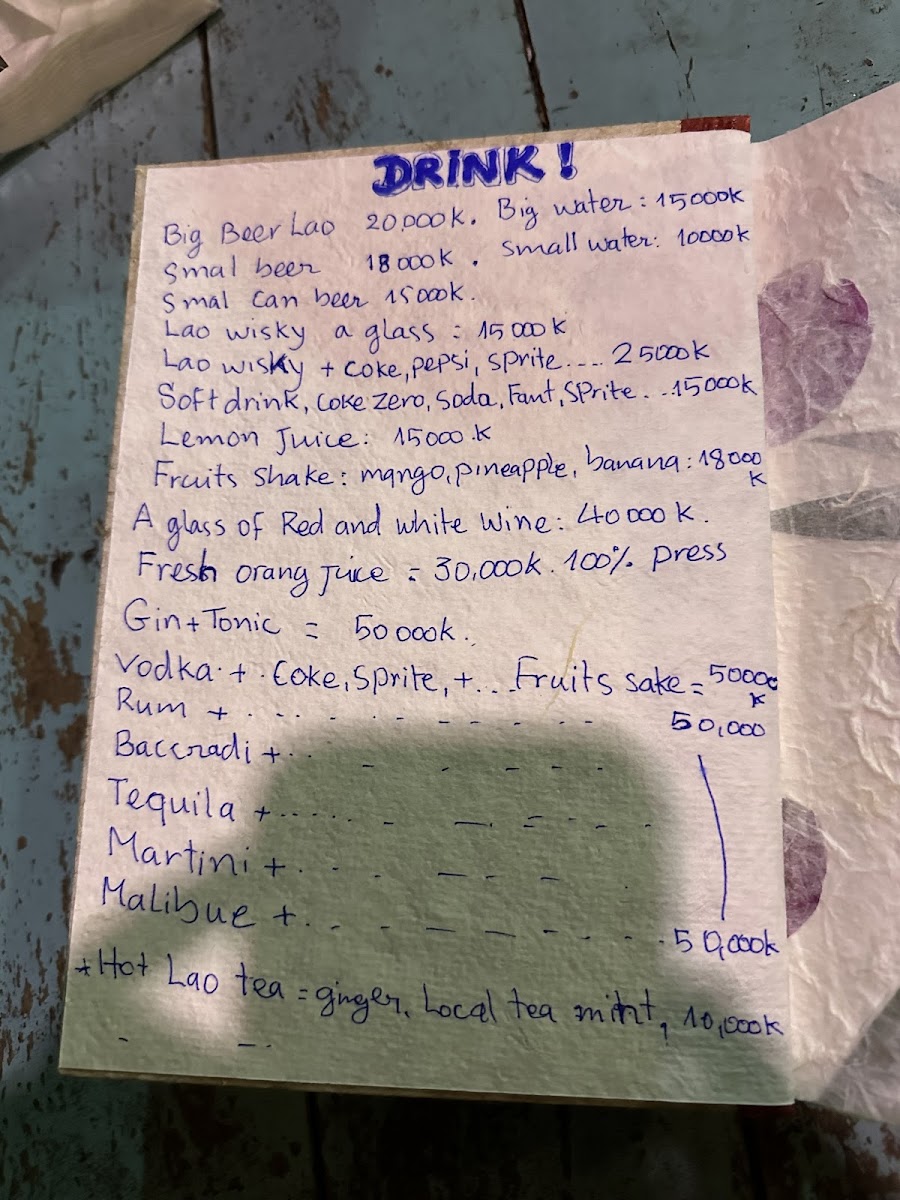 DRINK!
Big Beer Lao 20,000K. Big water: 15000K
Smal beer 18000K. Small water: 10000K
Smal Can beer 15000K.
Lao wisky a glass: 15000K
Lao wisky + coke, pepsi, sprite.... 25000K
Soft drink, coke zero, Soda, Fant, SPrite...15000K
Lemon Juice: 15000.K
Fruits Shake: mango, pineapple, banana: 18000
K
A glass of Red and white wine: 40000K.
Fresh orang juice = 30,000K. 100% press
Gin+Tonic = 50000K.
Vodka.+.Coke, Sprite, +...Fruits sake = 50000
K
Rum + . .. . - - - - - 50,000
Baccradi +.. - - - - -
Tequila +..... - — - - - -
Martini +. . . - — - -
Malibue +. . - - — — - - - . 50,000K
+Hot Lao tea = ginger, Local tea mint, 10,000K
- —.